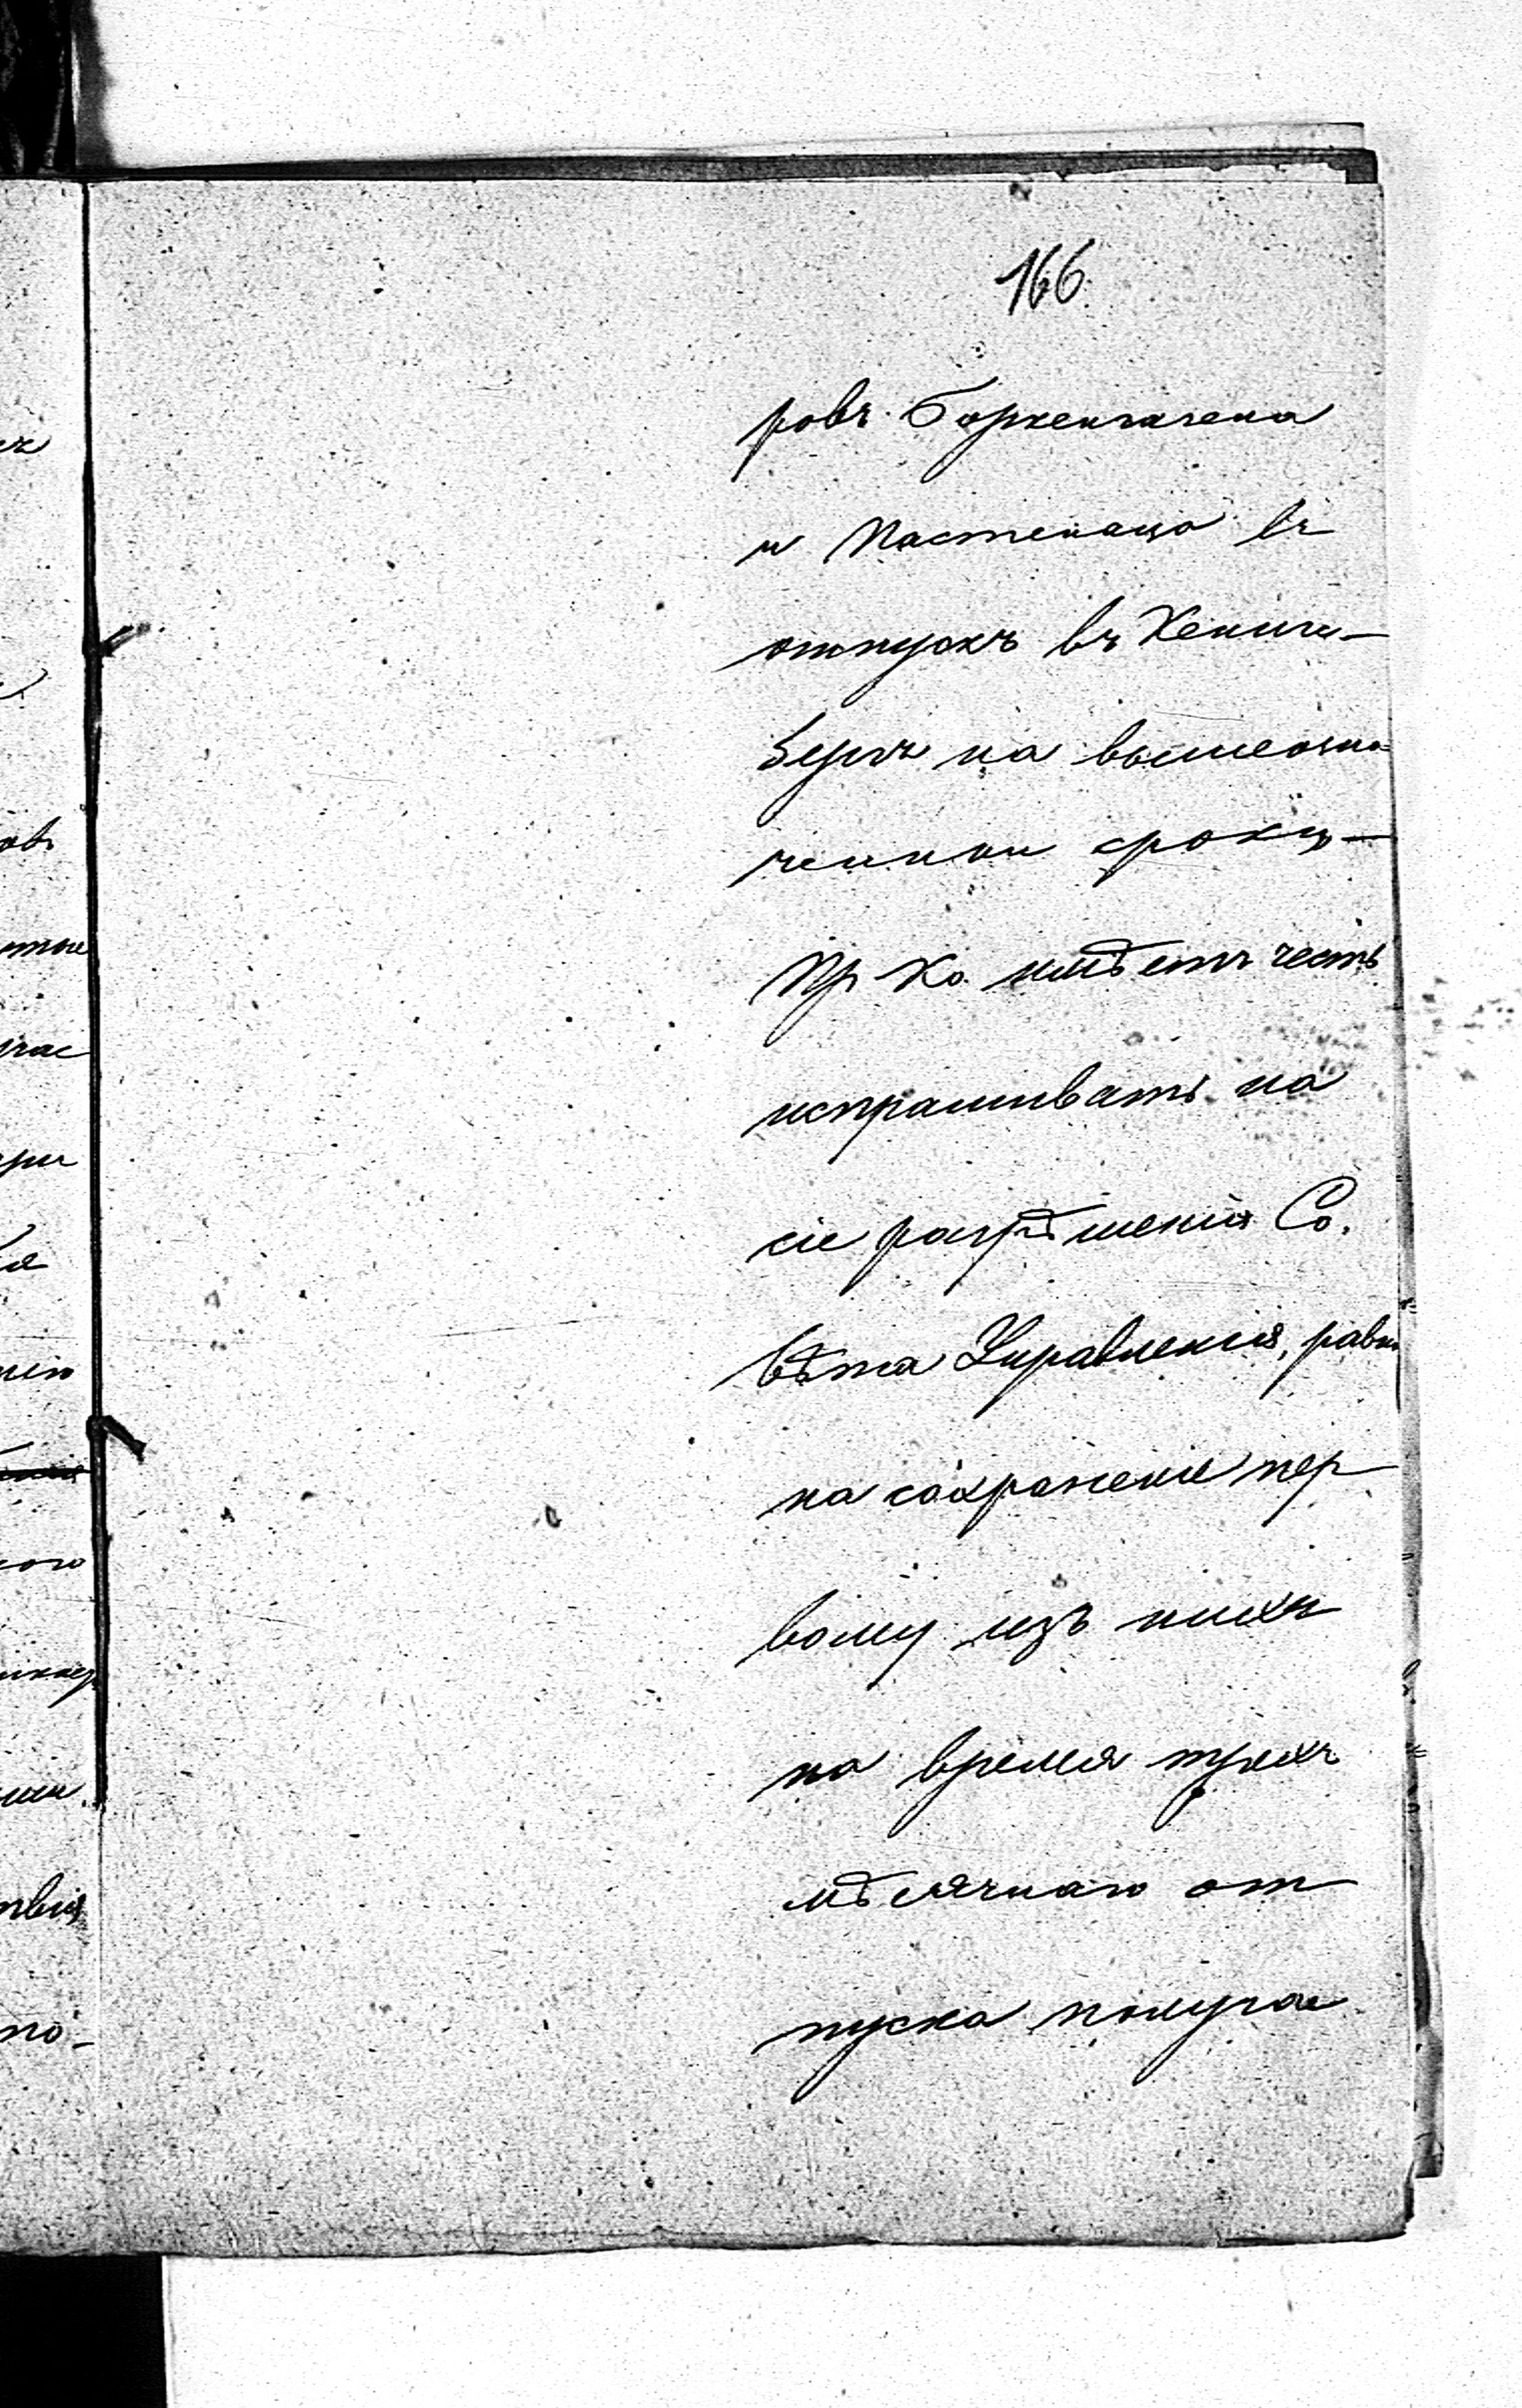 166
ровъ Боркенгагена
и Пастенацо въ
отпускъ въ Кенигс-
бергъ на вышеозна-
ченном сроки, —
Пр Ко. имѣетъ честь
испрашивать на
сіе разрѣшенія Со.
вѣта Управленія, равно
на сохраненіе пер
вому изъ нихъ
на время трехъ
мѣсячнаго от
пуска получае